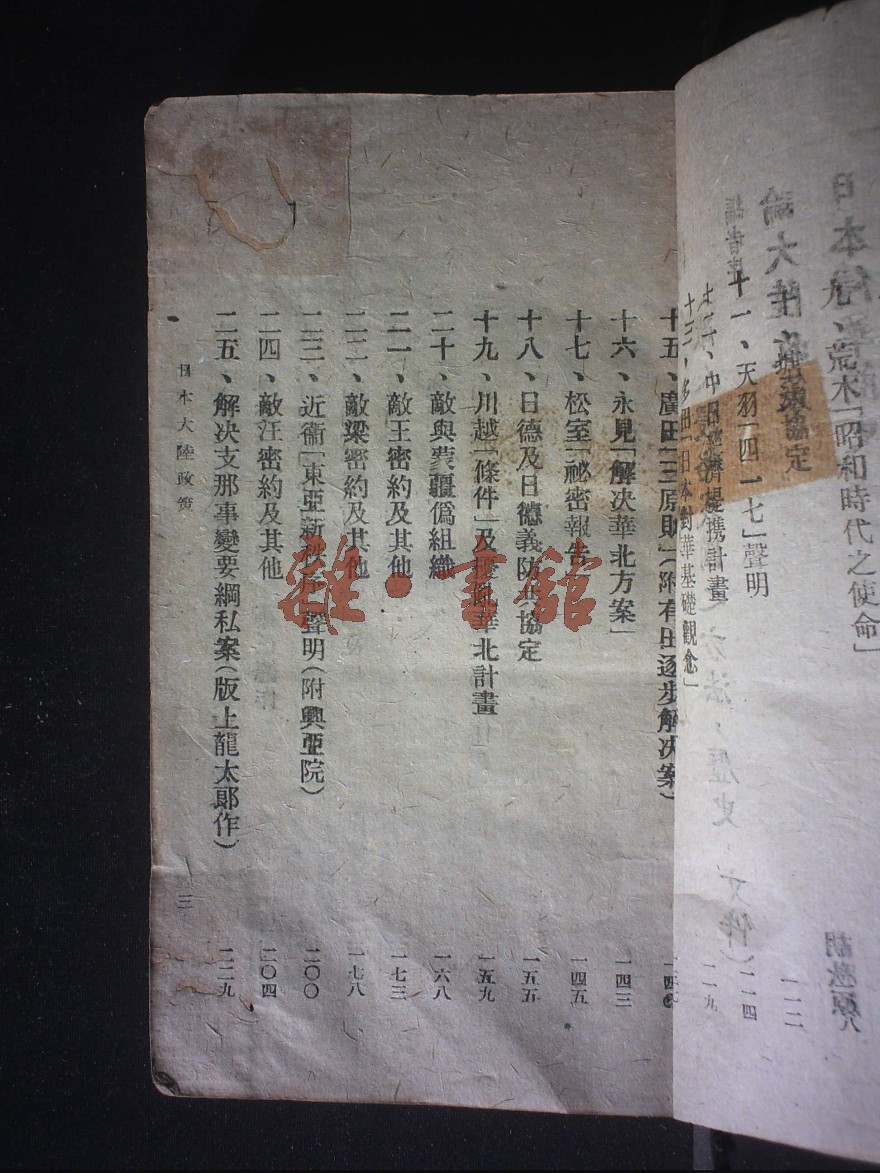 荒木「昭和時代之使命」
協定
一一二
十一、天羽「四一七」聲明
一一四
中日經濟提携計畫
一一九
十三、多田「日本對華基礎觀念」
十五、廣田「三原則」(附有田逐步解决案)
十六、永見「解决華北方案」
一四三
十七、松室「祕密報告」
一四五
十八、日德及日德義防共協定
一五五
十九、川越「條件」及擾亂華北計畫
一五九
二十、敵與蒙疆僞組織
一六八
二一、敵王密約及其他
一七三
二二、敵梁密約及其他
一七八
二三、近衞「東亞新秩序」聲明(附興亞院)
二〇〇
二四、敵汪密約及其他
二〇四
二五、解决支那事變要綱私案(版上龍太郞作)
二二九
日本大陸政策
三
雜·書館